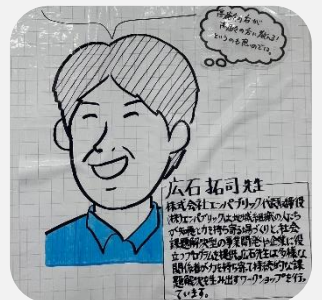 というのも思いのでは。
広石 拓司 先生
株式会社エンパブリック代表取締役
(株)エンパブリックは、地域組織の人たち
が知恵と力を持ち寄る場づくりと、社会
課題解決型の事業開発や企業に役
立つプログラムを提供。広石先生は多様な
関係者が力を持ち寄って持続的な課
題解決を生み出すワークショップを行っ
ています。